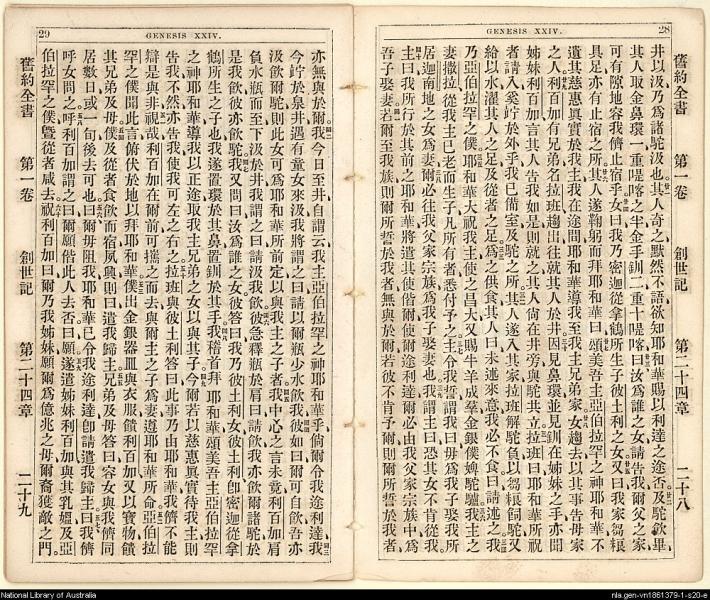 GENESIS XXIV.
28
舊約全書 第一卷 創世記 第二十四章 二十八
井以汲乃爲諸駝汲也其人奇之默然不語欲知耶和華賜以利達之途否及駝飲畢
其人取金鼻環一重半金手釧二重十喼喀曰汝爲誰之女請告我爾父之家
可有隙地容我儕止宿乎女曰我乃密迦從拿鶴所生子彼土利之女又曰我家芻粮
具足亦有止宿之所其人遂鞠躬而拜耶和華曰頌美吾主亞伯拉罕之神耶和華不
遺其慈惠眞實於我主我在途間耶和華導我至我主兄弟家女趨去以其事告毋家
之人利百加有兄弟名拉班趨出往就其人於井因見鼻環並見釧在姊妹之手亦聞
姊妹利百加言其人告我如是則就之其人倘在井旁與駝共立拉班曰耶和華所祝
者請入奚竚於外乎我已備室及駝之所其人遂入其家拉班解駝負以芻粮飼駝又
給以水濯其人之足及從者之足爲之供食其人曰未述來意我必不食曰請述之我
乃亞伯拉罕之僕耶和華大祝我主使之昌大又賜牛羊成羣金銀僕婢駝驢我主之
妻撒拉從我主已老而生子凡所有者悉付予之主令我誓謂我曰毋爲我子娶我所
居迦南地之女爲妻爾必往我父家宗族爲我子娶妻也我謂主曰恐其女不肯從我
主曰我所行於其前之耶和華將遣其使偕爾使爾途利達爾必由我父家宗族中爲
吾子娶妻若爾至我族則爾所誓於我者無與於爾若彼不肯予爾則爾所誓於我者
GENESIS XXIV.
29
亦無與於爾我今日至井自謂云我主亞伯拉罕之神耶和華乎倘爾令我途利達我
今竚於泉井遇有童女來汲我將謂之曰請以爾瓶少水飲我彼如曰爾可自飲吾亦
汲飲爾駝則此女可爲耶和華所前定以與我主之子者我中心之言未竟利百加肩
負水瓶而至下汲於井我謂之曰請汲我飲彼急釋瓶於肩曰請飲我亦飲爾諸駝於
是我飲彼亦飲駝我又問曰汝爲誰之女彼答曰我乃彼土利女彼土利卽密迦從拿
鶴所生之子也我遂置環於其鼻置釧於其手我稽首拜耶和華頌美吾主亞伯拉罕
之神耶和華導我以正途取我主兄弟之女以與其子今爾若以慈惠眞實待我主則
告我不然亦告我使我可左之右之拉班與彼土利答曰此事乃由耶和華我儕不能
辯是與非視哉利百加在爾前可攜之而去與爾主之子爲妻遵耶和華所命亞伯拉
罕之僕聞此言俯伏於地以拜耶和華僕出金銀器皿與衣服饋利百加又以寶物饋
其兄弟及毋僕及從者食飲而宿夙興則曰遣我歸主兄弟及毋答曰容女與我儕同
居數日或一旬後去可也曰爾毋阻我耶和華已令我途利達卽請遣我歸主曰我儕
呼女問之呼利百加謂之曰爾願偕此人去否曰願遂遣姊妹利百加與其乳媼及亞
伯拉罕之僕曁從者咸去祝利百加曰爾乃我姊妹願爾爲億兆之毋爾裔獲敵之門
舊約全書 第一卷 創世記 第二十四章 二十九
National Library of Australia
nla.gen-vn1861379-1-s20-e